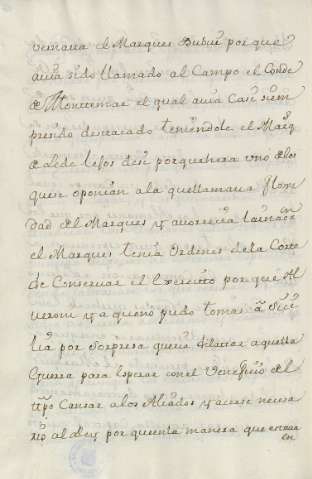 vernaua el Marques Duduu por que
auia sido llamado al Campo el Conde
de Montemar el qual auia Casi siem
pre sido desterado teniendole el Marq
de lejos del porque hera vno delos
que se oponian ala que llamaua flem
dad del Marques y auorrecia la inaccn
el Marques tenia Ordenes dela Corte
de Conseruar el Exercito por que Al
veroni ya que no pudo tomar a Sici
lia por Sorpresa queria dilatar aquella
Guerra para esperar con el Veneficio del
tipo Cansar alos Aliados y a ese necesa
rio al Rey por quenta manera que estaua
en